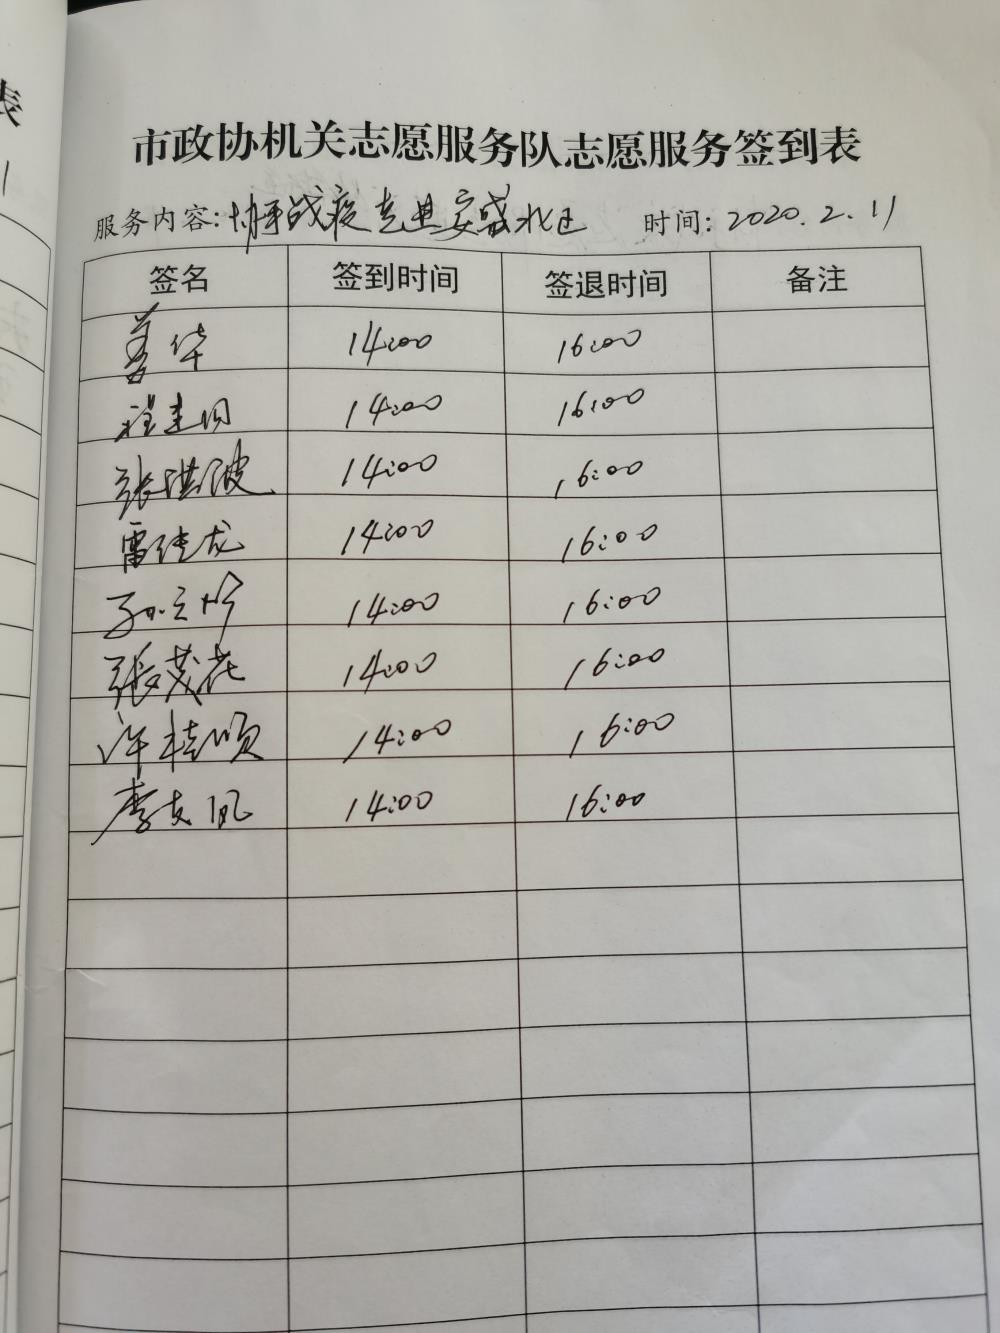 表
市政协机关志愿服务队志愿服务签到表
服务内容: 战疫 安盛北 时间: 2020.2.11
签名 签到时间 签退时间 备注
姜华 14:00 16:00
程建国 14:00 16:00
张琪波 14:00 16:00
雷佳龙 14:00 16:00
孙 14:00 16:00
张茂花 14:00 16:00
许桂顺 14:00 16:00
李文凤 14:00 16:00